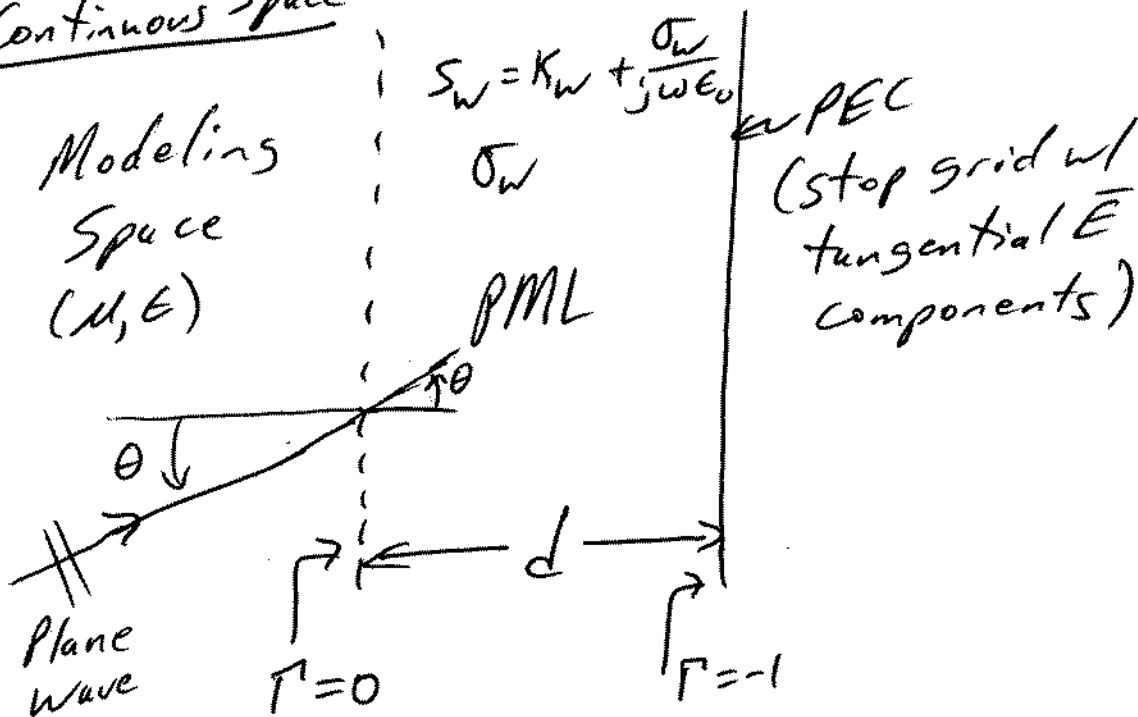 Continuous Space
Modeling
Space
(μ, ε)
S_w = K_w + σ_w / jωε₀
σ_w
PML
PEC
(stop grid w/
tangential E̅
components)
θ
θ
d
Plane
wave
Γ = 0
Γ = -1